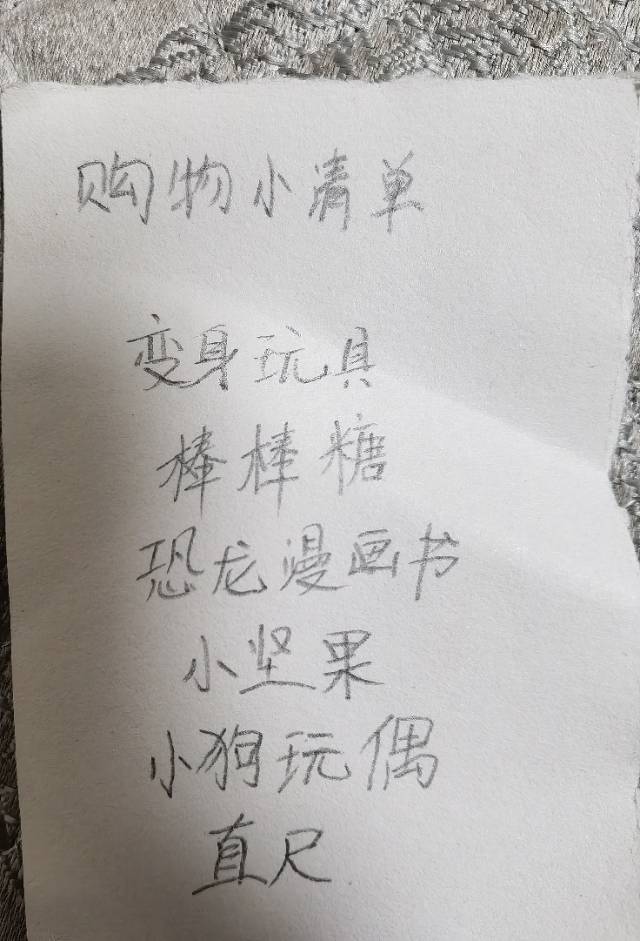 购物小清单
变身玩具
棒棒糖
恐龙漫画书
小坚果
小狗玩偶
直尺